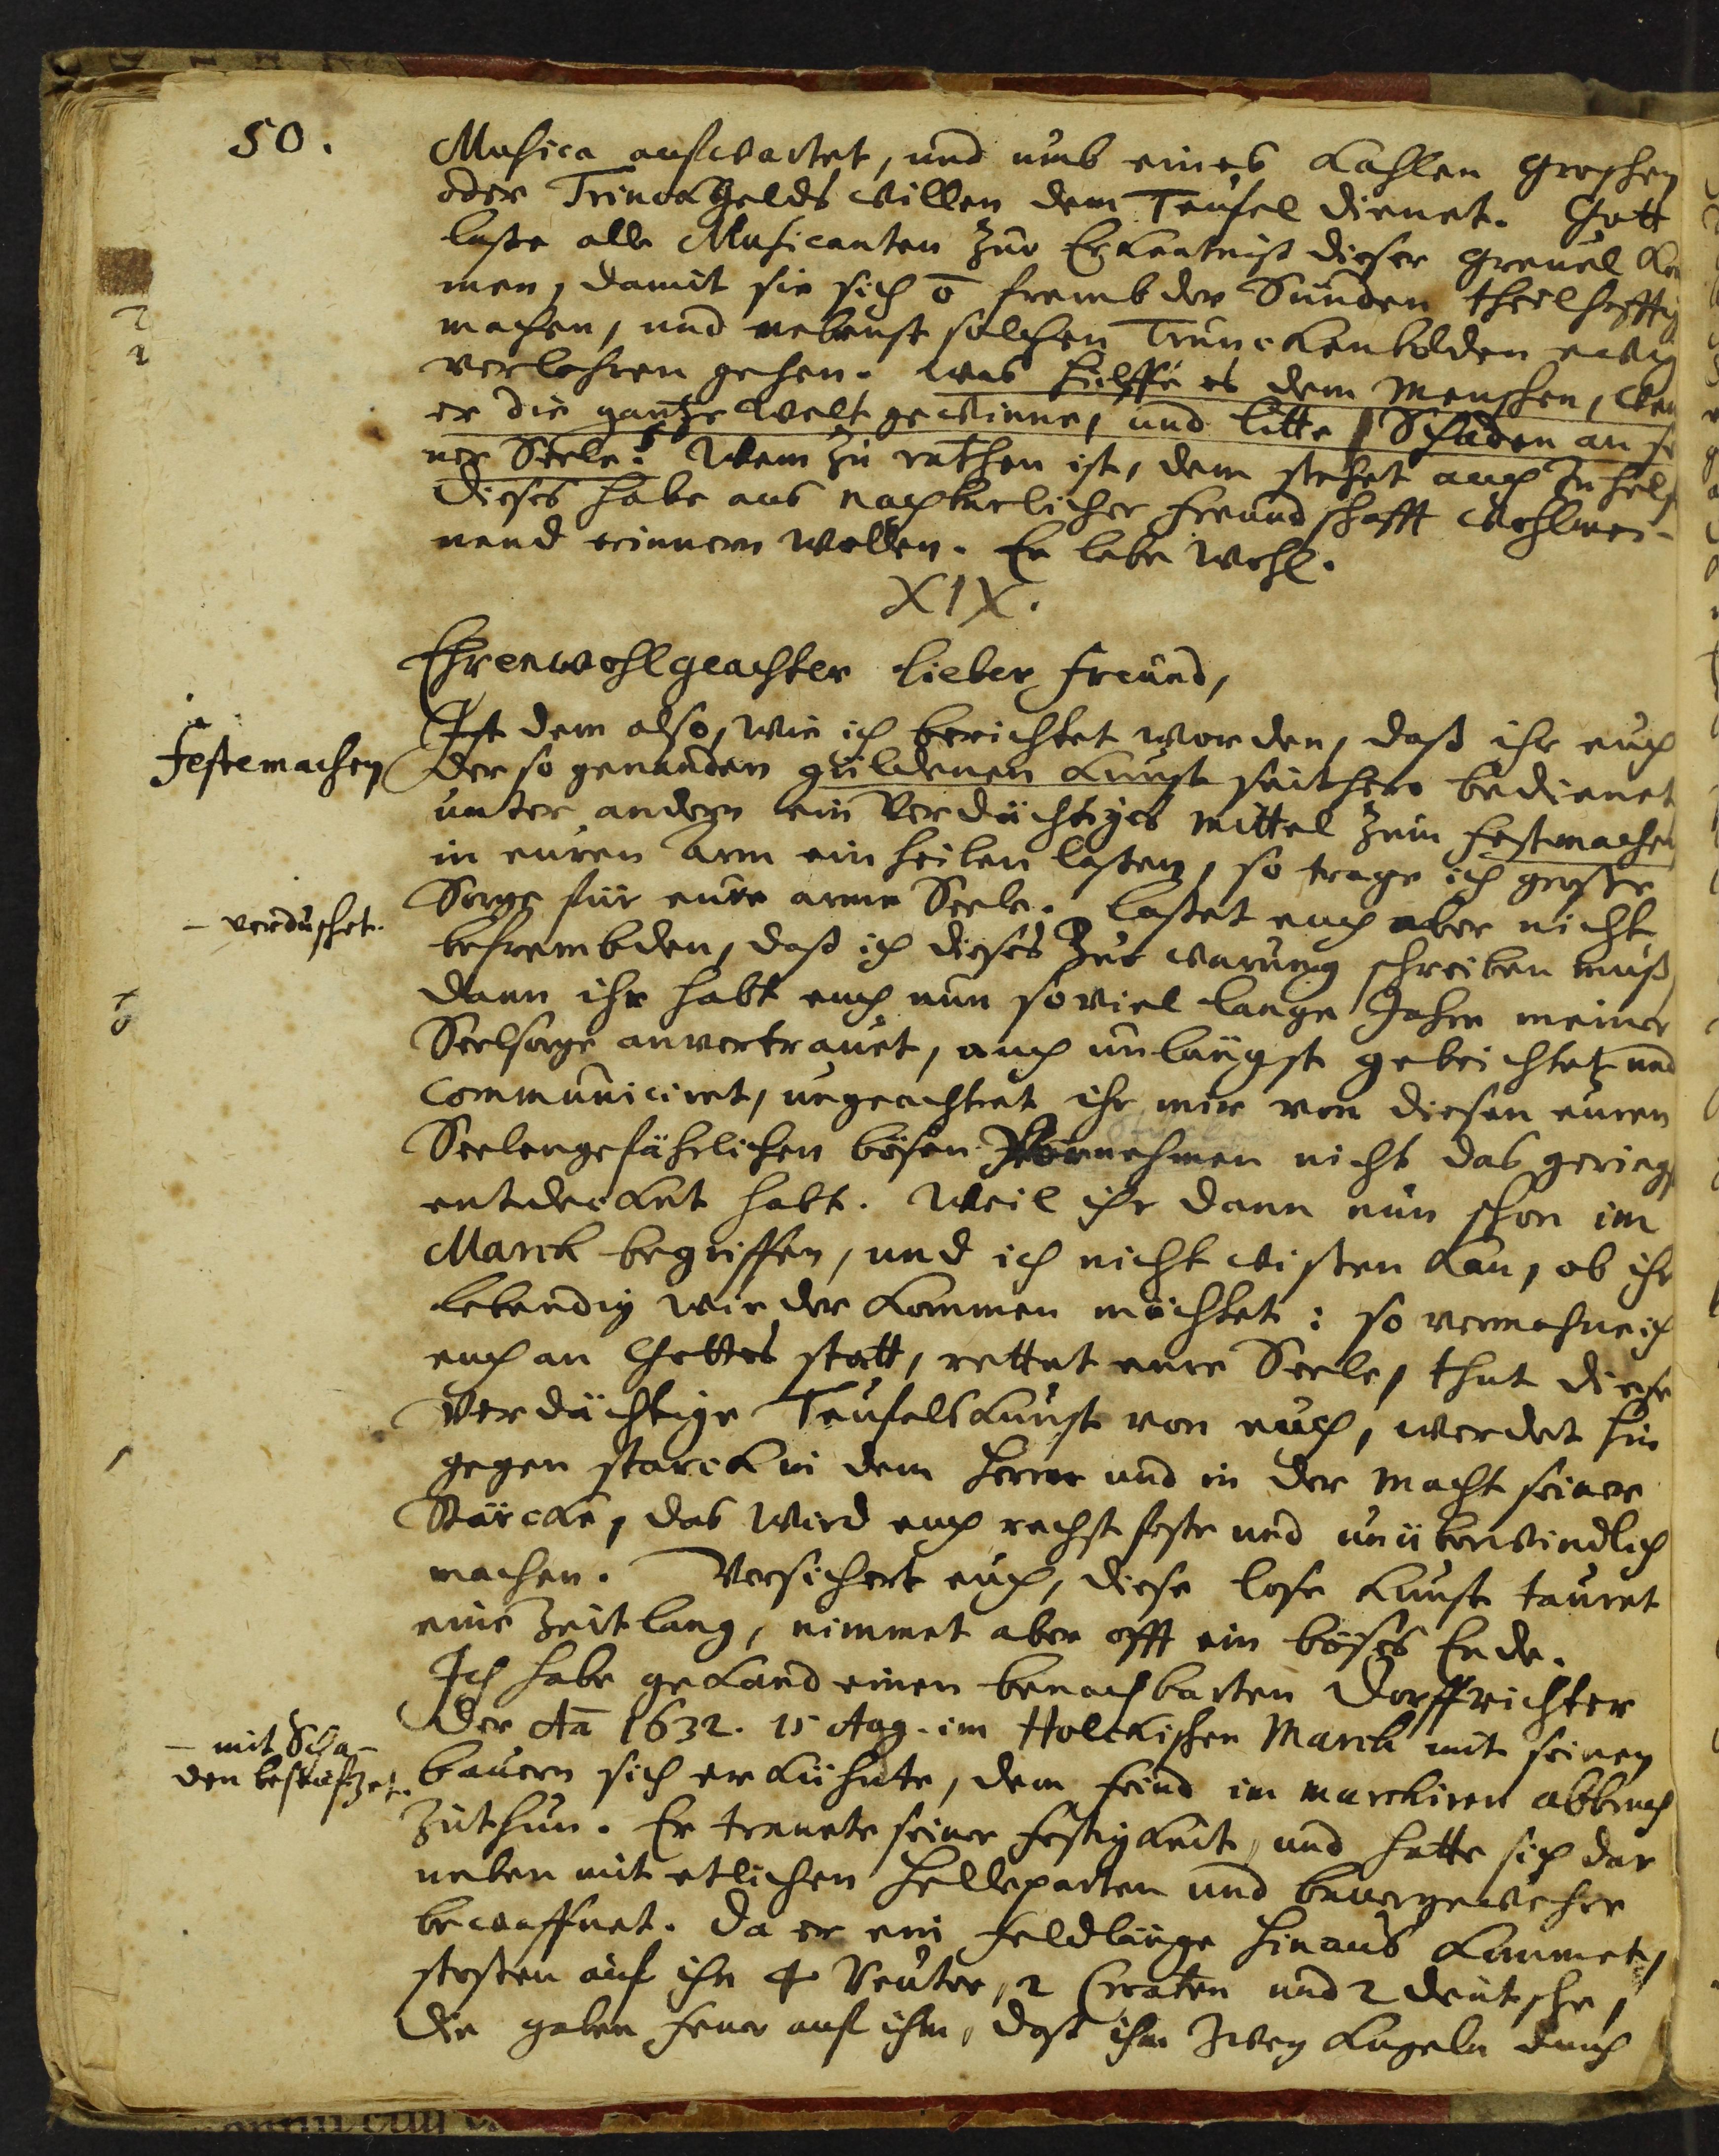 50.
Musica aufwartet, und umb eines kahlen Groschen
oder Trinckgelds willen dem Teufel dienet. Gott
laße alle Musicanten zur Erkentniß dieser Greuel ko
men, damit sie sich õ frembder Sünden theilhafftig
machen, und nebenst solchen Trunckenbolden ewig
verlohren gehen. Was hülffe es dem Menschen, wen
er die gantze Welt gewinne, und litte Schaden an se
ner Seele? Wem zu rathen ist, dem stehet auch zu helf
Dieses habe aus nachbarlicher Freundschafft wohlmei-
nend erinnern wollen. Er lebe wohl.
XIX.
Ehrenwohlgeachter lieber Freund,
Ist dem also, wie ich berichtet worden, daß ihr euch
Festemachen
der so genanden güldenen Kunst seithero bedienet
unter andern ein verdächtiges Mittel zum festmachen
in euren Arm ein heilen laßen, so trage ich große
Sorge für eure arme Seele. Laßet euch aber nicht
- verduschet.
befrembden, daß ich dieses zur warnung schreiben muß,
dann ihr habt euch nun so viel lange Jahre meiner
Seelsorge anvertrauet, auch unlängst gebeichtet und
communiciret, ungeachtet ihr mir von diesen euren
Seelengefährlichen bösen Vornehmen nicht das gering
entdecket habt. Weil ihr dann nun schon im
March begriffen, und ich nicht wißen kan, ob ihr
lebendig wieder kommen möchtet: so vermahne ich
euch an Gottes statt, rettet eure Seele, thut diese
verdächtige Teufelskunst von euch, werdet hin
gegen starck in dem Herrn und in der Macht seiner
Stärcke, das wird euch recht feste und unüberwindlich
machen. Versichert euch, diese lose Kunst tauret
eine Zeitlang, nimmet aber offt ein böses Ende.
Ich habe gekand einen benachbarten Dorffrichter
der Aõ 1632. 15 Aug. im Holckischen March mit seinen
- mit Scha-
den
bauern sich erkühnte, dem Feind im marchiren abbruch
zuthun. Er trauete seiner Festigkeit, und hatte sich dar
neben mit etlichen Helleparten und bauergewehre
bewaffnet. Da er ein Feldlänge hinaus kommet,
stoßen auf ihn 4 Reuter, 2 Croaten und 2 deutsche,
die gaben Feuer auf ihn, daß ihm zwey Kugeln durch